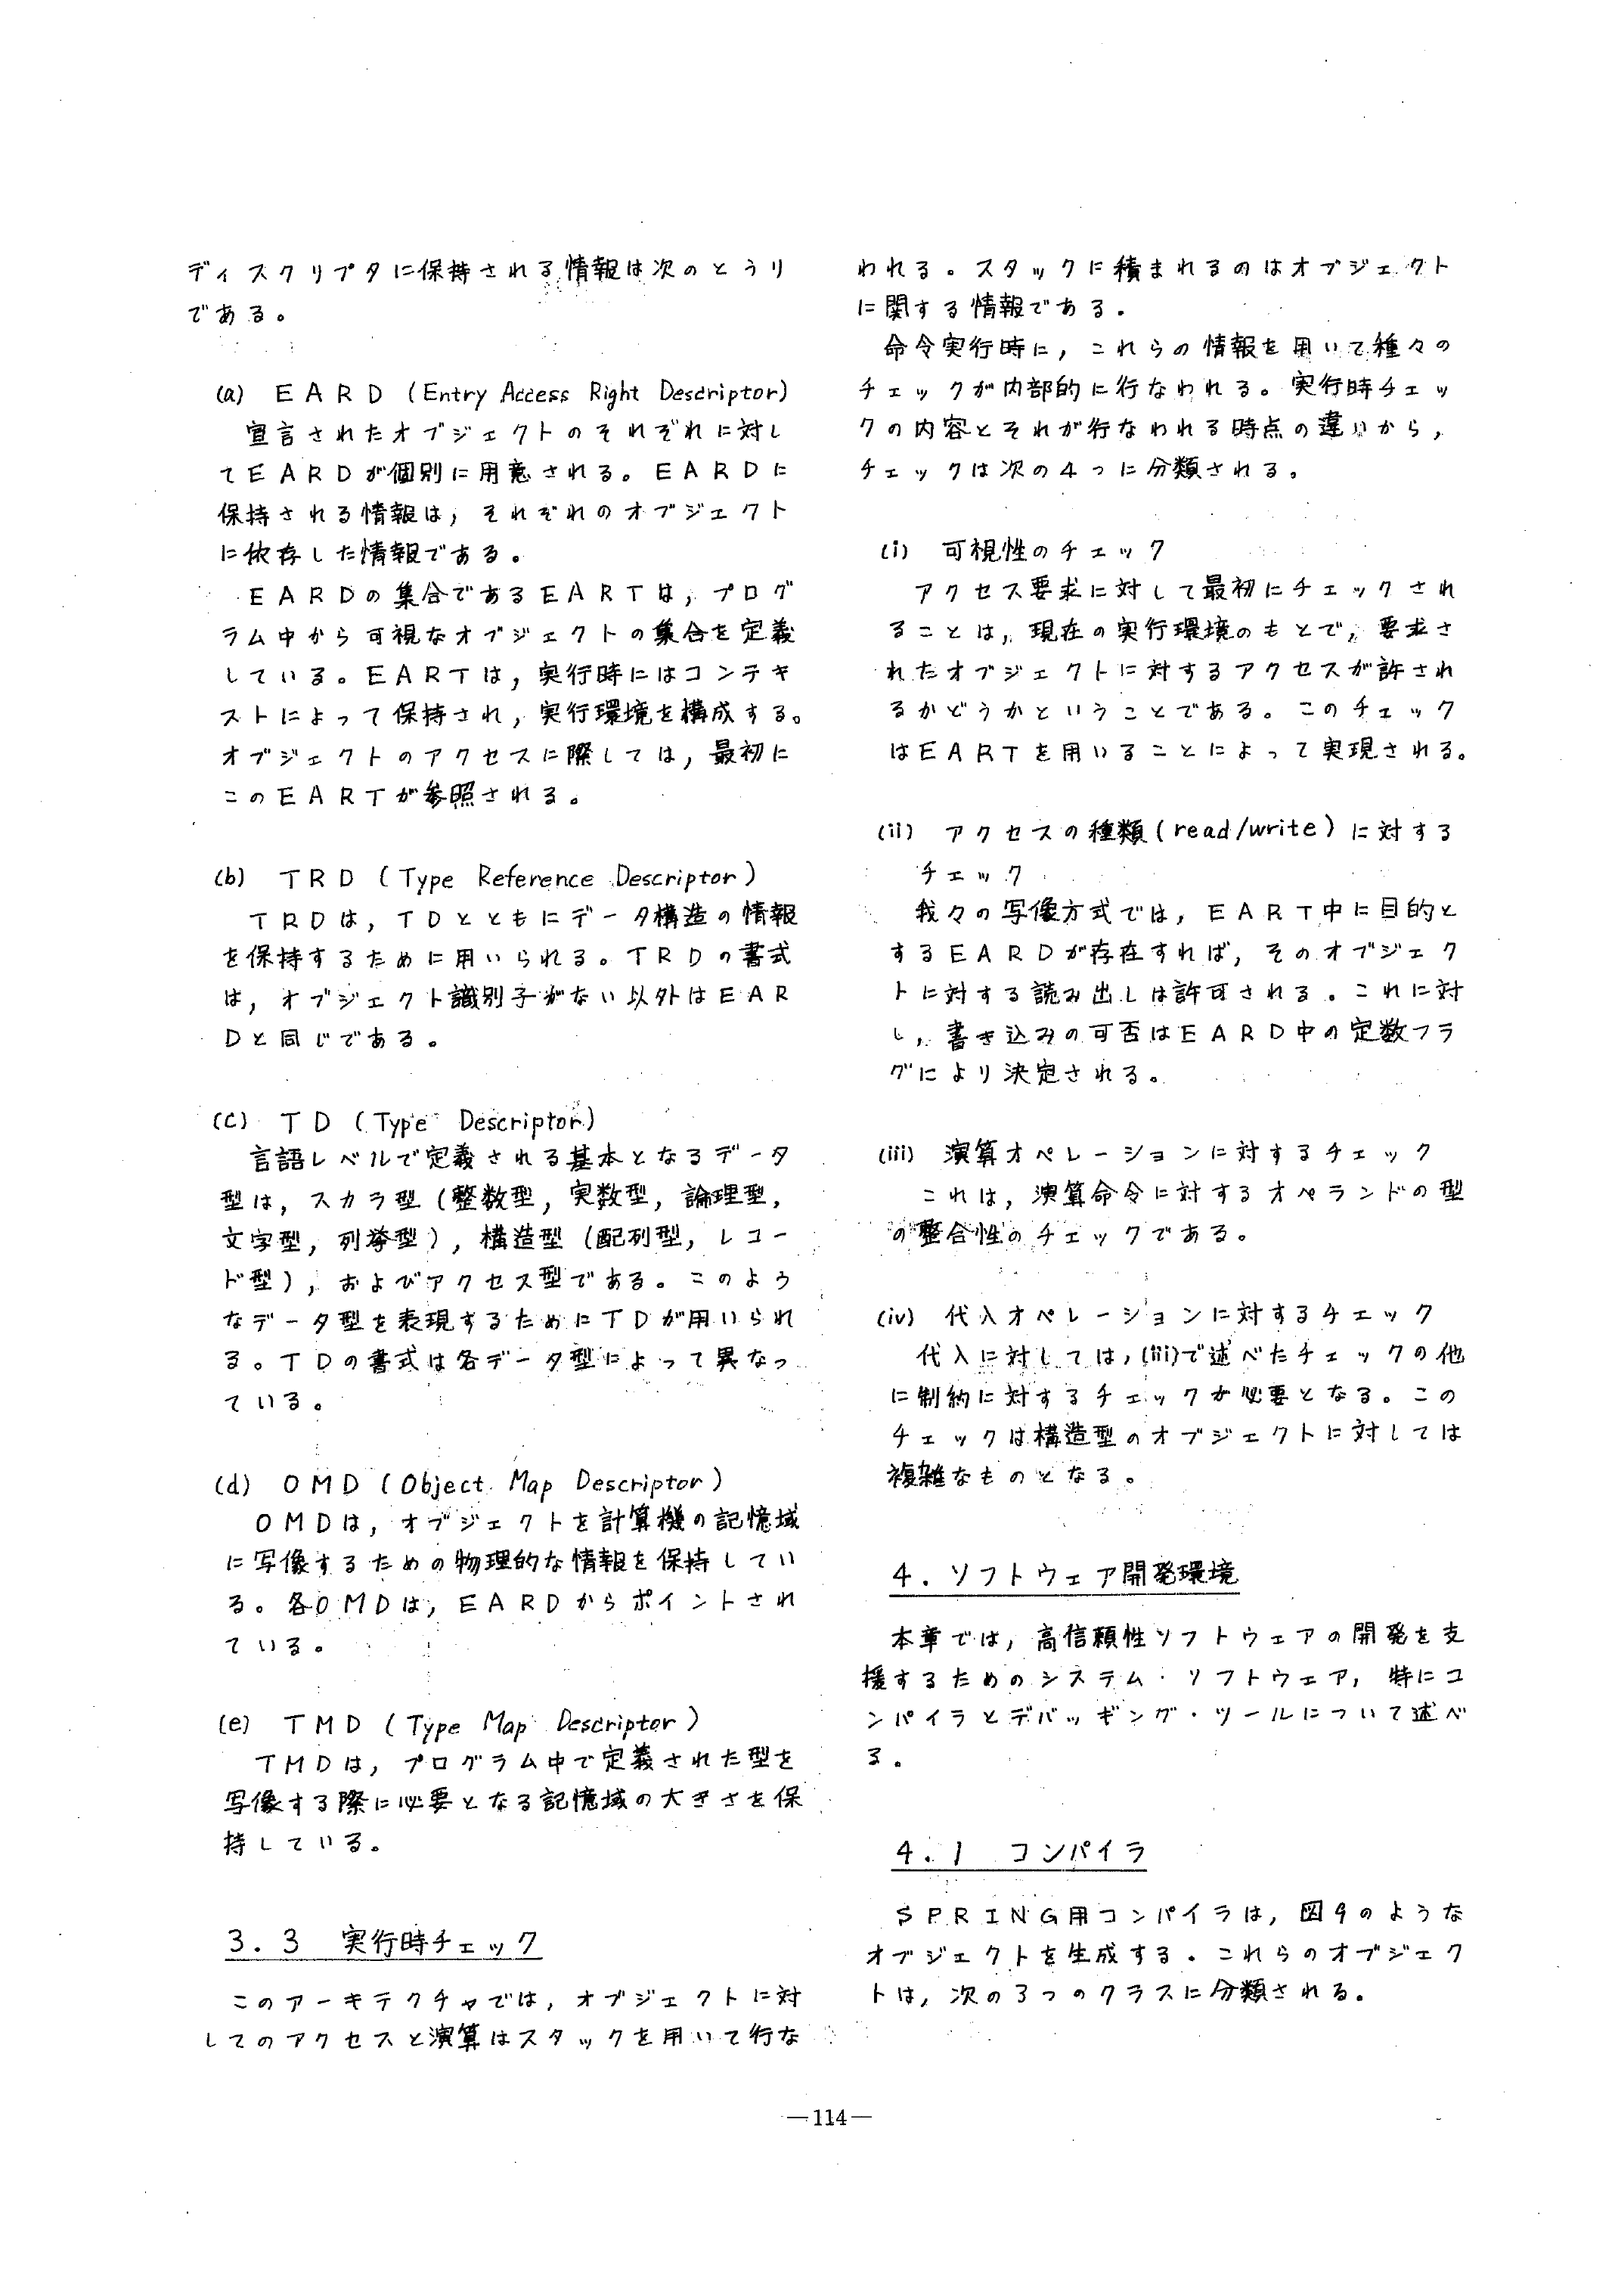 ディスクリプタに保持される情報は次のとうり
である。
(a) EARD (Entry Access Right Descriptor)
宣言されたオブジェクトのそれぞれに対し
てEARDが個別に用意される。EARDに
保持される情報は，それぞれのオブジェクト
に依存した情報である。
EARDの集合であるEARTは，プログ
ラム中から可視なオブジェクトの集合を定義
している。EARTは，実行時にはコンテキ
ストによって保持され，実行環境を構成する。
オブジェクトのアクセスに際しては，最初に
このEARTが参照される。
(b) TRD (Type Reference Descriptor)
TRDは，TDとともにデータ構造の情報
を保持するために用いられる。TRDの書式
は，オブジェクト識別子がない以外はEAR
Dと同じである。
(c) TD (Type Descriptor)
言語レベルで定義される基本となるデータ
型は，スカラ型（整数型，実数型，論理型，
文字型，列挙型），構造型（配列型，レコー
ド型），およびアクセス型である。このよう
なデータ型を表現するためにTDが用いられ
る。TDの書式は各データ型によって異なっ
ている。
(d) OMD (Object Map Descriptor)
OMDは，オブジェクトを計算機の記憶域
に写像するための物理的な情報を保持してい
る。各OMDは，EARDからポイントされ
ている。
(e) TMD (Type Map Descriptor)
TMDは，プログラム中で定義された型を
写像する際に必要となる記憶域の大きさを保
持している。
3.3 実行時チェック
このアーキテクチャでは，オブジェクトに対
してのアクセスと演算はスタックを用いて行な
われる。スタックに積まれるのはオブジェクト
に関する情報である。
命令実行時に，これらの情報を用いて種々の
チェックが内部的に行なわれる。実行時チェッ
クの内容とそれが行なわれる時点の違いから，
チェックは次の4つに分類される。
(i) 可視性のチェック
アクセス要求に対して最初にチェックされ
ることは，現在の実行環境のもとで，要求さ
れたオブジェクトに対するアクセスが許され
るかどうかということである。このチェック
はEARTを用いることによって実現される。
(ii) アクセスの種類(read/write)に対する
チェック
我々の写像方式では，EART中に目的と
するEARDが存在すれば，そのオブジェク
トに対する読み出しは許可される。これに対
し，書き込みの可否はEARD中の定数フラ
グにより決定される。
(iii) 演算オペレーションに対するチェック
これは，演算命令に対するオペランドの型
の整合性のチェックである。
(iv) 代入オペレーションに対するチェック
代入に対しては，(iii)で述べたチェックの他
に制約に対するチェックが必要となる。この
チェックは構造型のオブジェクトに対しては
複雑なものとなる。
4. ソフトウェア開発環境
本章では，高信頼性ソフトウェアの開発を支
援するためのシステム・ソフトウェア，特にコ
ンパイラとデバッギング・ツールについて述べ
る。
4.1 コンパイラ
SPRING用コンパイラは，図9のような
オブジェクトを生成する。これらのオブジェク
トは，次の3つのクラスに分類される。
—114—